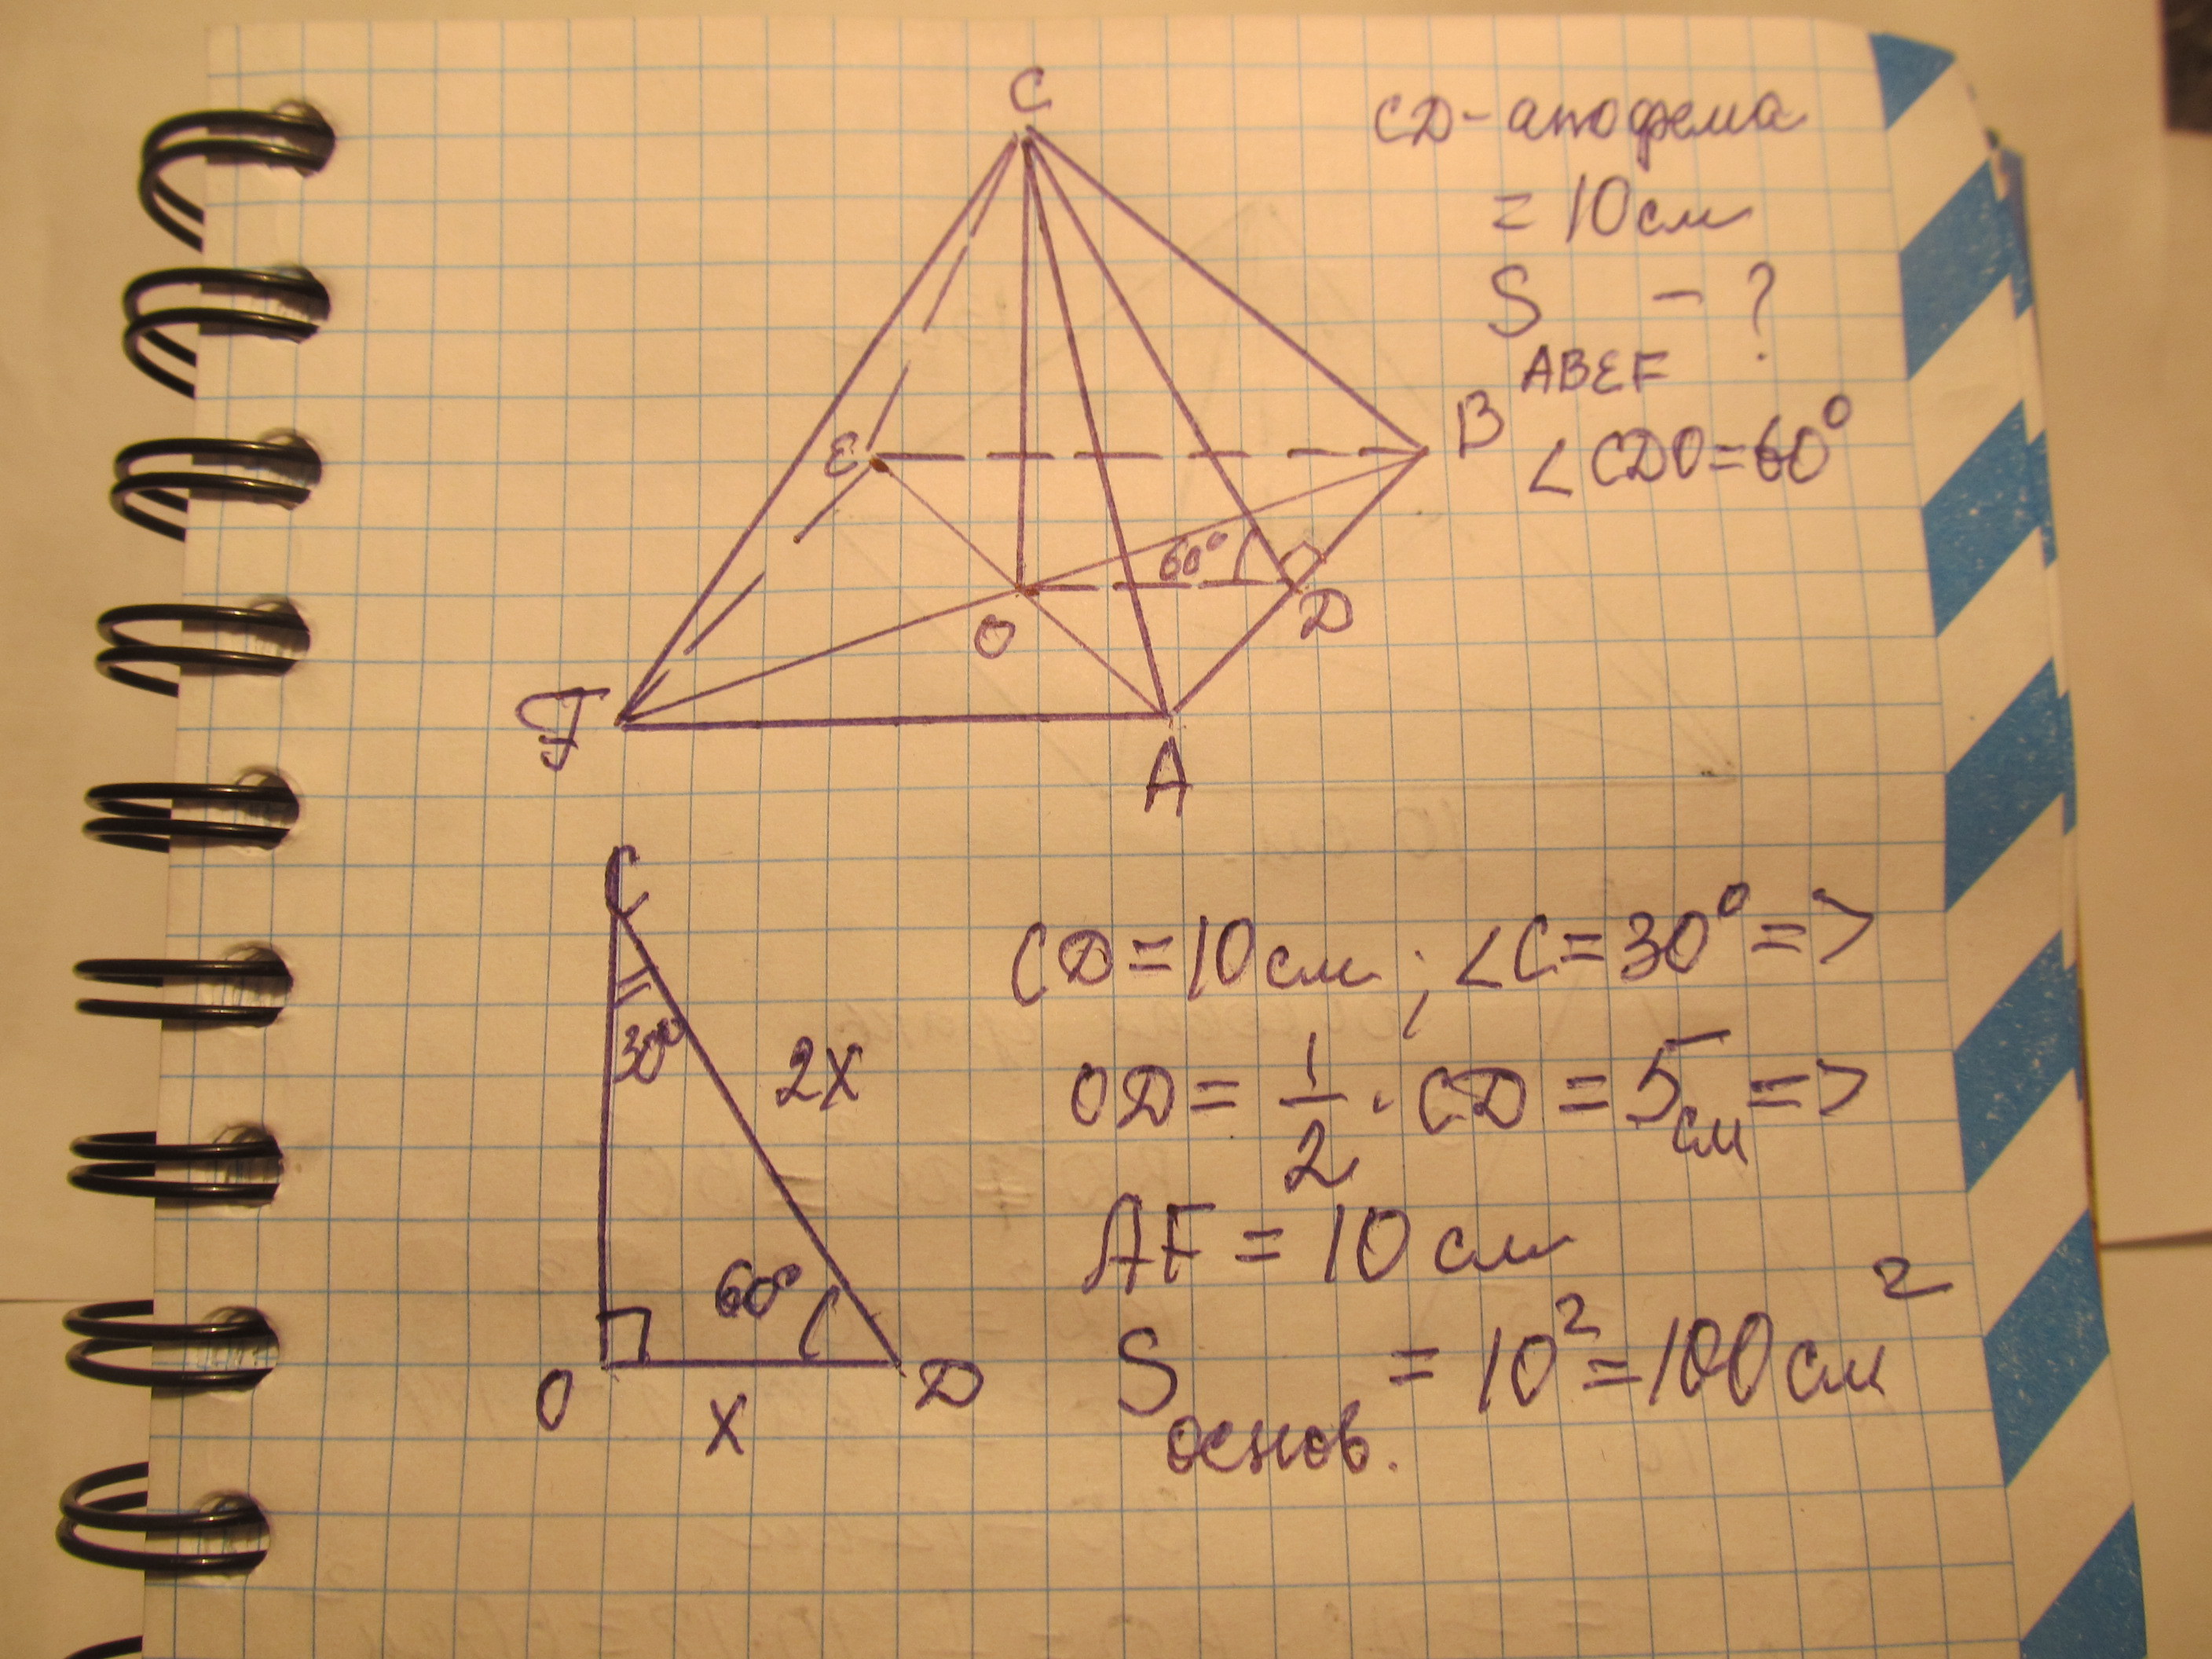 C
CD-апофема
= 10 см
S - ?
ABEF
E
B
∠CDO=60°
60°
O
D
F
A
C
30°
2x
CD=10 см; ∠C=30°=>
OD= 1/2 · CD = 5 см =>
AF = 10 см
60°
O
D
x
S основ. = 10² = 100 см²